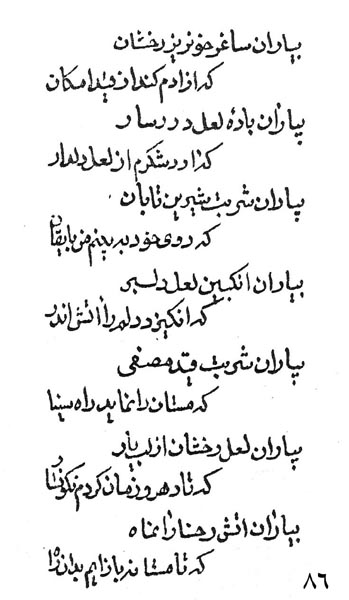 بیاران ساغر خونریز رخشان
که ازادم کند از قید امکان
بیاران بادهٔ لعل در رسار
که اورد شکرم از لعل دلدار
بیاران شربت شیرین تابان
که روی خود به بینم من
بیاران انکبین لعل دلبر
که انکیزد دلم را اتش اندر
بیاران شربت قند مصفی
که مستان را نماید راه سینا
بیاران لعل رخشان از لب یار
که تا دهر و زمان کردم نکو
بیاران اتش رخنار انماه
که تا مستانه باز ایم بدان
۸۶